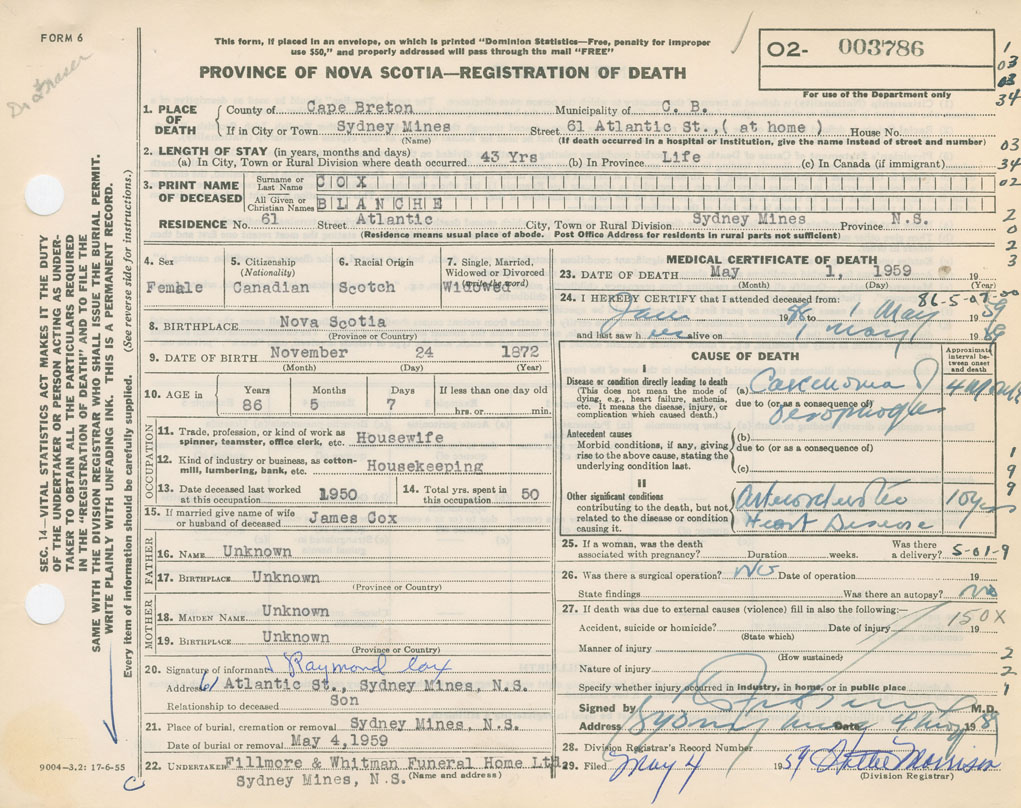 FORM 6
Dr Fraser
This form, if placed in an envelope, on which is printed "Dominion Statistics—Free, penalty for improper
use $50," and properly addressed will pass through the mail "FREE"
PROVINCE OF NOVA SCOTIA—REGISTRATION OF DEATH
O2- 003786
For use of the Department only
1
03
03
34
03
34
02
2
0
2
3
SEC. 14—VITAL STATISTICS ACT MAKES IT THE DUTY
OF THE UNDERTAKER OR PERSON ACTING AS UNDER-
TAKER TO OBTAIN ALL THE PARTICULARS REQUIRED
IN THE "REGISTRATION OF DEATH" AND TO FILE THE
SAME WITH THE DIVISION REGISTRAR WHO SHALL ISSUE THE BURIAL PERMIT.
WRITE PLAINLY WITH UNFADING INK. THIS IS A PERMANENT RECORD.
Every item of information should be carefully supplied. (See reverse side for instructions.)
1. PLACE OF DEATH
County of Cape Breton Municipality of C. B.
If in City or Town Sydney Mines Street 61 Atlantic St.,( at home ) House No.
(Name) (If death occurred in a hospital or institution, give the name instead of street and number)
2. LENGTH OF STAY (in years, months and days)
(a) In City, Town or Rural Division where death occurred 43 Yrs (b) In Province Life (c) In Canada (if immigrant)
3. PRINT NAME OF DECEASED
Surname or Last Name COX
All Given or Christian Names BLANCHE
RESIDENCE No. 61 Street Atlantic City, Town or Rural Division Sydney Mines Province N.S.
(Residence means usual place of abode. Post Office Address for residents in rural parts not sufficient)
4. Sex
Female
5. Citizenship (Nationality)
Canadian
6. Racial Origin
Scotch
7. Single, Married, Widowed or Divorced (write the word)
Widowed
8. BIRTHPLACE Nova Scotia
(Province or Country)
9. DATE OF BIRTH November 24 1872
(Month) (Day) (Year)
10. AGE in
Years Months Days If less than one day old
86 5 7 hrs. or min.
OCCUPATION
11. Trade, profession, or kind of work as
spinner, teamster, office clerk, etc. Housewife
12. Kind of industry or business, as cotton-
mill, lumbering, bank, etc. Housekeeping
13. Date deceased last worked at this occupation 1950
14. Total yrs. spent in this occupation 50
15. If married give name of wife
or husband of deceased James Cox
FATHER
16. NAME Unknown
17. BIRTHPLACE Unknown
(Province or Country)
MOTHER
18. MAIDEN NAME Unknown
19. BIRTHPLACE Unknown
(Province or Country)
20. Signature of informant Raymond Cox
Address 61 Atlantic St., Sydney Mines, N.S.
Relationship to deceased Son
21. Place of burial, cremation or removal Sydney Mines, N.S.
Date of burial or removal May 4,1959
22. UNDERTAKER Fillmore & Whitman Funeral Home Ltd.
Sydney Mines, N.S. (Name and address)
9004-3.2: 17-6-55
C
MEDICAL CERTIFICATE OF DEATH
23. DATE OF DEATH May 1, 1959 19
(Month) (Day) (Year)
86-5-07-00
24. I HEREBY CERTIFY that I attended deceased from:
June 1958 to 1 May 1959
and last saw her alive on 1 May 1959
CAUSE OF DEATH
Approximate interval between onset and death
I
Disease or condition directly leading to death
(This does not mean the mode of
dying, e.g., heart failure, asthenia,
etc. It means the disease, injury, or
complication which caused death.)
(a) Carcinoma of 4 months
due to (or as a consequence of)
oesophagus
Antecedent causes
Morbid conditions, if any, giving
rise to the above cause, stating the
underlying condition last.
(b)
due to (or as a consequence of)
(c)
1
9
9
II
Other significant conditions
contributing to the death, but not
related to the disease or condition
causing it.
Arteriosclerotic 10 yrs
Heart Disease
25. If a woman, was the death Was there
associated with pregnancy? Duration weeks. a delivery? 5-01-9
26. Was there a surgical operation? NO Date of operation 19
State findings Was there an autopsy? no
27. If death was due to external causes (violence) fill in also the following:—
150X
Accident, suicide or homicide? Date of injury 19
(State which)
Manner of injury 2
(How sustained)
Nature of injury 2
Specify whether injury occurred in industry, in home, or in public place 1
Signed by M.D.
Address Sydney Mines Date 4 May 1959
28. Division Registrar's Record Number
29. Filed May 4 1959 Hattie Morrison
(Division Registrar)